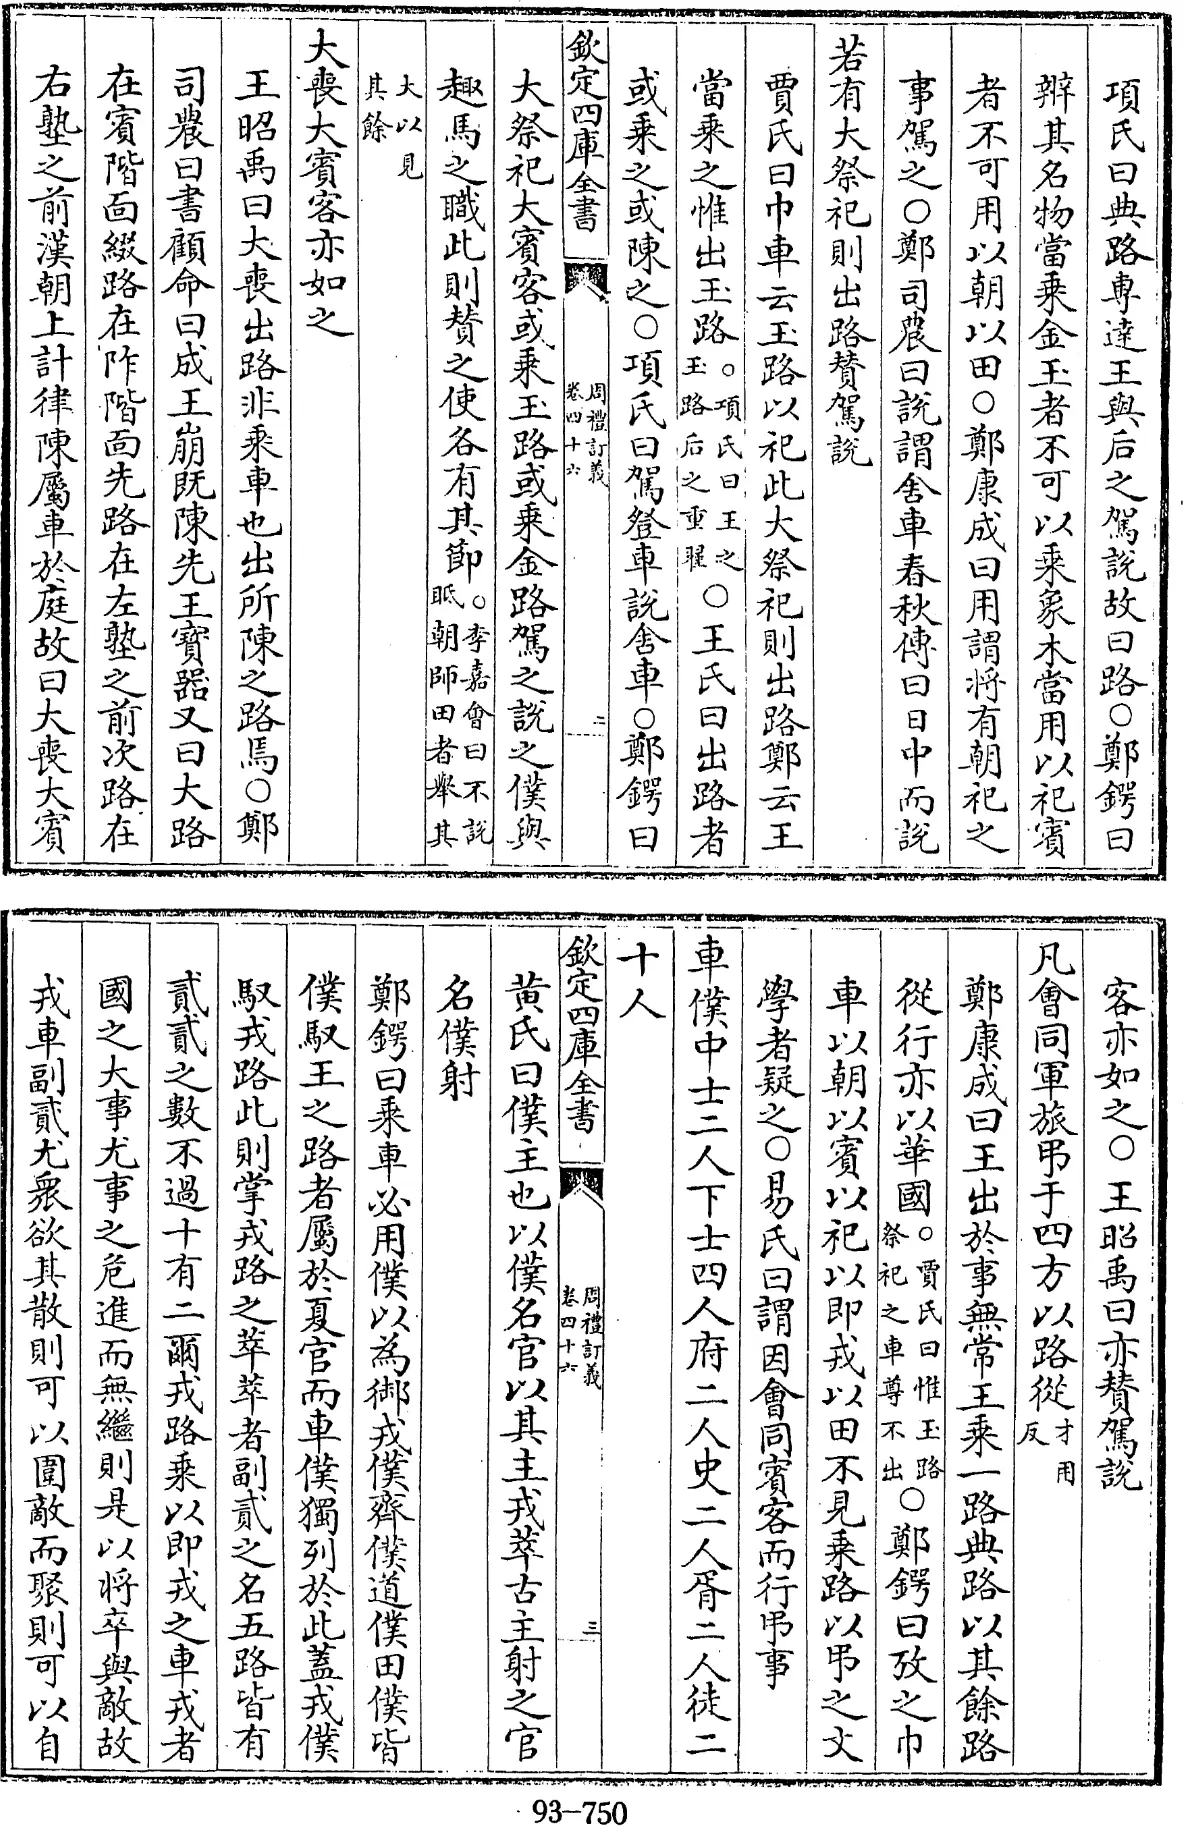 項氏曰典路專達王與后之駕説故曰路○鄭鍔曰
辨其名物當乘金玉者不可以乘象木當用以祀賓
者不可用以朝以田○鄭康成曰用謂將有朝祀之
事駕之○鄭司農曰説謂舍車春秋傳曰日中而説
若有大祭祀則出路贊駕説
賈氏曰巾車云玉路以祀此大祭祀則出路鄭云王
當乘之惟出玉路○項氏曰王之玉路后之重翟○王氏曰出路者
或乘之或陳之○項氏曰駕登車説舍車○鄭鍔曰
欽定四庫全書 周禮訂義卷四十六 二
大祭祀大賓客或乘玉路或乘金路駕之説之僕與
趣馬之職此則贊之使各有其節○李嘉會曰不説眡朝師田者舉其
大以見其餘
大喪大賓客亦如之
王昭禹曰大喪出路非乘車也出所陳之路焉○鄭
司農曰書顧命曰成王崩既陳先王寶器又曰大路
在賓階面綴路在阼階面先路在左塾之前次路在
右塾之前漢朝上計律陳屬車於庭故曰大喪大賓
客亦如之○王昭禹曰亦贊駕説
凡會同軍旅弔于四方以路從才用反
鄭康成曰王出於事無常王乘一路典路以其餘路
從行亦以華國○賈氏曰惟玉路祭祀之車尊不出○鄭鍔曰攷之巾
車以朝以賓以祀以即戎以田不見乘路以弔之文
學者疑之○易氏曰謂因會同賓客而行弔事
車僕中士二人下士四人府二人史二人胥二人徒二
十人
欽定四庫全書 周禮訂義卷四十六 三
黄氏曰僕主也以僕名官以其主戎萃古主射之官
名僕射
鄭鍔曰乘車必用僕以為御戎僕齊僕道僕田僕皆
僕馭王之路者屬於夏官而車僕獨列於此蓋戎僕
馭戎路此則掌戎路之萃萃者副貳之名五路皆有
貳貳之數不過十有二爾戎路乘以即戎之車戎者
國之大事尤事之危進而無繼則是以將卒與敵故
戎車副貳尤衆欲其散則可以圍敵而聚則可以自
93-750